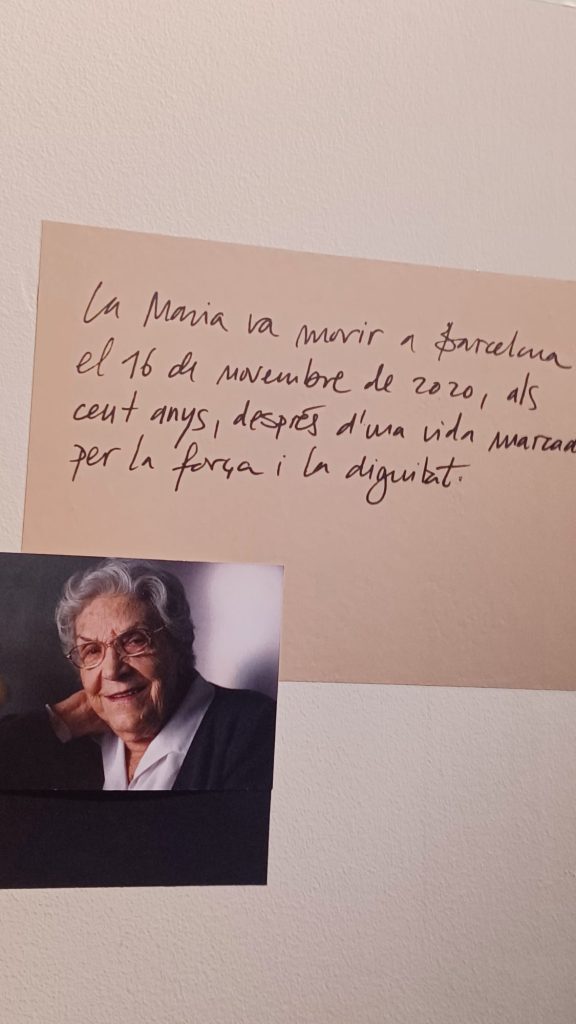 La Maria va morir a Barcelona
el 16 de novembre de 2020, als
cent anys, després d'una vida marcada
per la força i la dignitat.